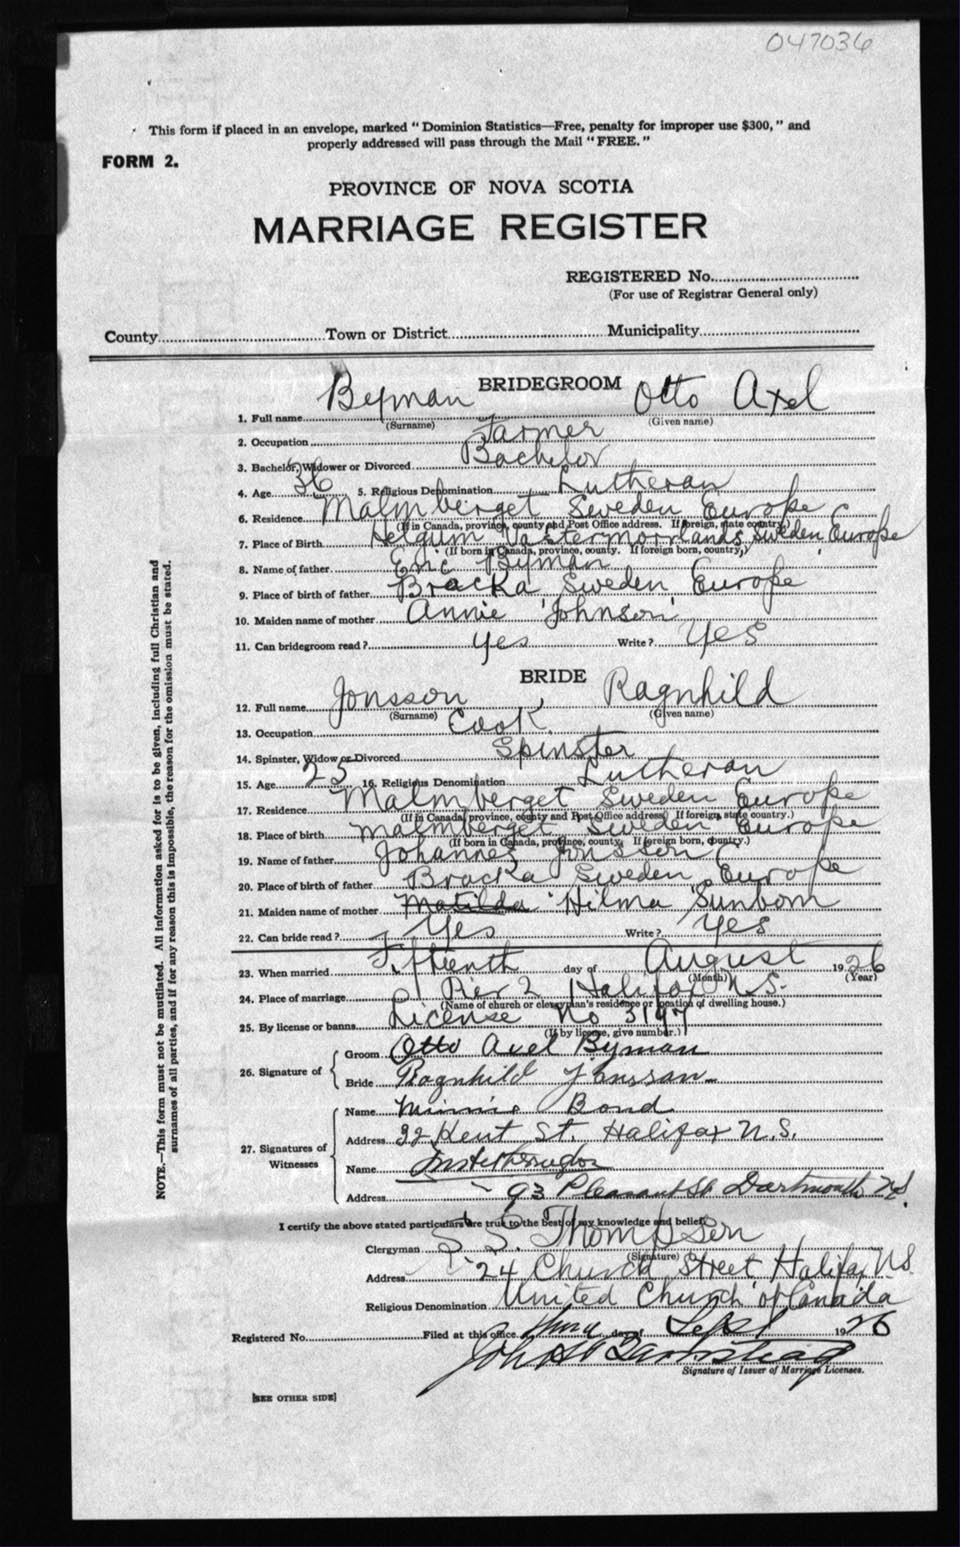 047036
This form if placed in an envelope, marked "Dominion Statistics—Free, penalty for improper use $300," and
properly addressed will pass through the Mail "FREE."
FORM 2.
PROVINCE OF NOVA SCOTIA
MARRIAGE REGISTER
REGISTERED No.
(For use of Registrar General only)
County Town or District Municipality
BRIDEGROOM
1. Full name Byman Otto Axel
(Surname) (Given name)
2. Occupation Farmer
3. Bachelor, Widower or Divorced Bachelor
4. Age 36 5. Religious Denomination Lutheran
6. Residence Malmberget Sweden Europe
(If in Canada, province, county and Post Office address. If foreign, state country.)
7. Place of Birth Helgum Vastermorrlands Sweden Europe
(If born in Canada, province, county. If foreign born, country.)
8. Name of father Eric Byman
9. Place of birth of father Bracka Sweden Europe
10. Maiden name of mother Annie 'Johnson'
11. Can bridegroom read? Yes Write? Yes
BRIDE
12. Full name Jonsson Ragnhild
(Surname) (Given name)
13. Occupation Cook
14. Spinster, Widow or Divorced Spinster
15. Age 25 16. Religious Denomination Lutheran
17. Residence Malmberget Sweden Europe
(If in Canada, province, county and Post Office address. If foreign, state country.)
18. Place of birth Malmberget Sweden Europe
(If born in Canada, province, county. If foreign born, country.)
19. Name of father Johannes Jonsson
20. Place of birth of father Bracka Sweden Europe
21. Maiden name of mother Matilda Hilma 'Sunbom
22. Can bride read? Yes Write? Yes
23. When married Fifteenth day of August 1926
(Month) (Year)
24. Place of marriage Pier 2 Halifax N.S.
(Name of church or clergyman's residence or location of dwelling house.)
25. By license or banns License No 3197
(If by license, give number.)
26. Signature of Groom Otto Axel Byman
Bride Ragnhild Jonsson
27. Signatures of Witnesses Name Minnie Bond
Address 32 Kent St. Halifax N.S.
Name
Address 93 Pleasant St Dartmouth N.S.
I certify the above stated particulars are true to the best of my knowledge and belief.
Clergyman S S. Thompson
(Signature)
Address 24 Church Street Halifax N.S
Religious Denomination United Church of Canada
Registered No. Filed at this office day of Sept 1926
Signature of Issuer of Marriage Licenses.
[SEE OTHER SIDE]
NOTE.—This form must not be mutilated. All information asked for is to be given, including full Christian and
surnames of all parties, and if for any reason this is impossible, the reason for the omission must be stated.